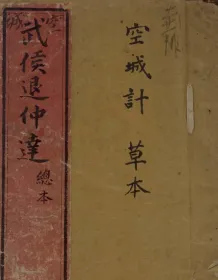 空城計 草本
武侯退仲達 總本